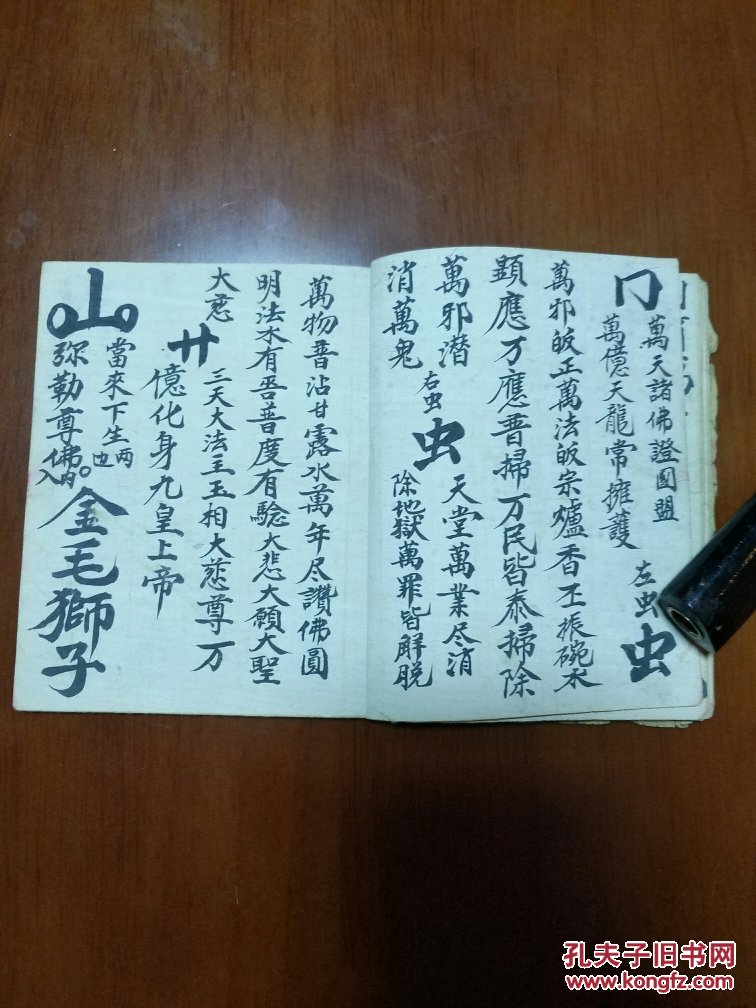 冂
萬天諸佛證囯盟
萬億天龍常擁護
左虫
虫
萬邪皈正萬法皈宗爐香丕振碗水
顕應万應普掃万民皆泰掃除
萬邪潛
消萬鬼
右虫
虫
天堂萬業尽消
除地獄萬罪皆解脱
萬物普沾甘露水萬年尽讚佛圓
明法水有吾普度有驗大悲大願大聖
大慈
廿
三天大法主玉相大慈尊万
億化身九皇上帝
山
當來下生两也
弥勒尊佛
入内
金毛獅子
孔夫子旧书网
www.kongfz.com